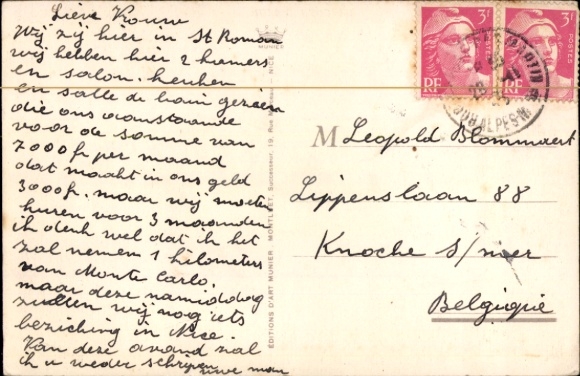 Lieve Konine
Wij zij hier in St Roman
wij hebben hier 2 kamers
en salon. keuken
en salle de bain gezien
die ons aanstaande
voor de somme van
7000 fr per maand
dat maakt in ons geld
3000 fr. maar wij moeten
huren voor 3 maanden
ik denk wel dat ik het
zal nemen 1 kilometers
van Monte Carlo.
maar deze namiddag
zullen wij nog iets
beziching in Nice.
Van deze avond zal
ik u weder schrijven
uwe man
EDITIONS D'ART MUNIER MONTLUET, Successeur, 19, Rue NICE
3F 3F
POSTES POSTES
RF RF
M Leopold Blommaert
Lippenslaan 88
Knocke s/ meer
Belgiqie